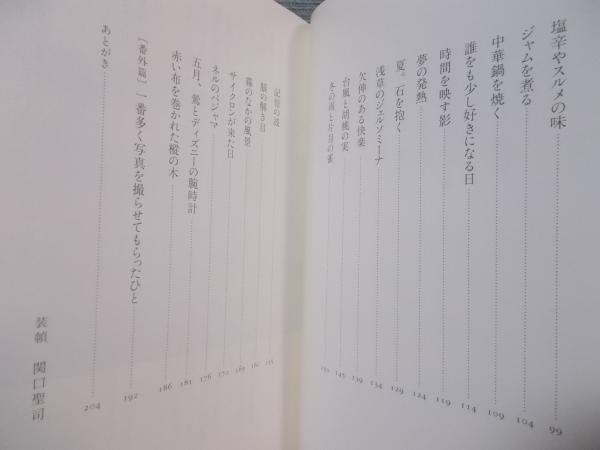 塩辛やスルメの味 99
ジャムを煮る 104
中華鍋を焼く 109
誰をも少し好きになる日 114
時間を映す影 119
夢の発熱 124
夏。石を抱く 129
浅草のジェルソミーナ 134
欠伸のある快楽 139
台風と胡桃の実 145
冬の雨と片目の雀 151
記憶の波 155
脳の解き目 162
霧のなかの風景 165
サイクロンが来た日 172
ネルのパジャマ 176
五月、鶯とディズニーの腕時計 181
赤い布を巻かれた樅の木 186
[番外篇] 一番多く写真を撮らせてもらったひと 192
あとがき 204
装幀 関口聖司